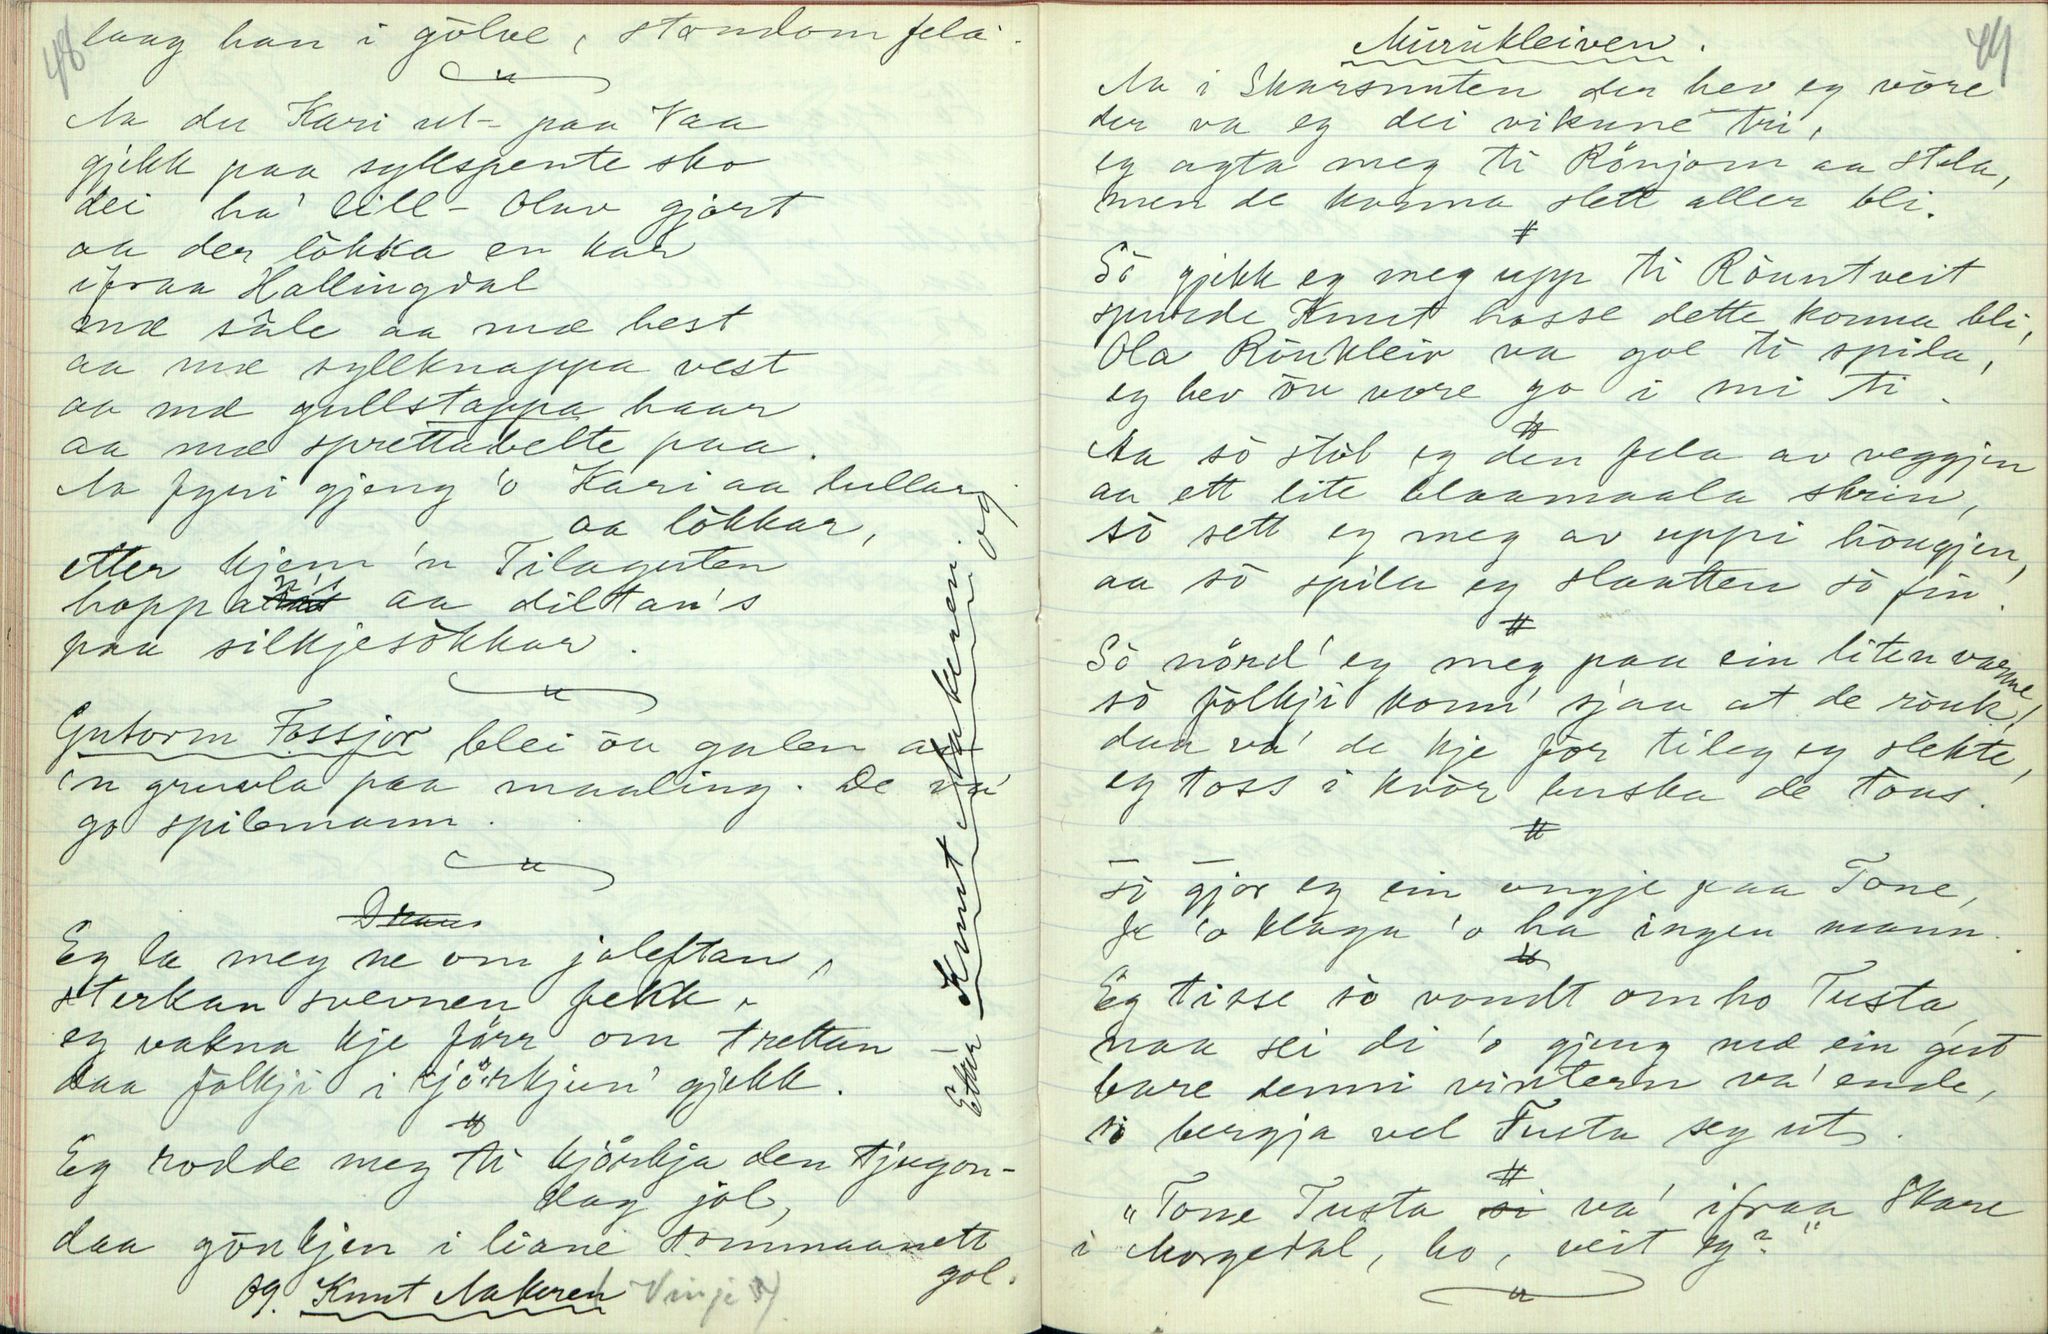 48
laag han i gölve, stondom fela.
Aa du Kari ut- paa Vaa
gjekk paa syllspente sko
dei ha' lill-Olav gjort
aa der lökka en kar
ifraa Hallingdal
mæ såle aa mæ hest
aa mæ syllknappa vest
aa mæ gullstappa haar
aa mæ sprettabelte paa.
Aa fyri gjeng 'o Kari aa hullar
aa lökkar,
etter kjem 'n Tilaguten
hoppa n's aa diltan's
paa silkjesökkar.
Gutorm Fossjor blei öu galen aa
'n gruvla paa maaling. De va'
go spilemann.
Eg la meg ne om joleftan,
sterkan svevnen fekk,
eg vakna kje förr om trettan
daa folkji i kjörkjun' gjekk.
Eg rodde meg ti kjörkja den tjugon-
dag jol,
daa göukjen i liane sommaanett
gol.
Og. Knut Aakeren Vinje
Etter Knut Aakeren og
49
Murukleiven.
Aa i Skarsnuten der hev eg vöre
der va eg dei vikune tri,
eg agta meg ti Rönjom aa stela,
men de konna slett aller bli.
Sö gjekk eg meg upp ti Röuntveit
spurde Knut hosse dette konna bli,
Ola Rönkleiv va goe ti spila,
eg hev öu vore go i mi ti.
Aa sö stöl eg den fela av veggjen
aa ett lite blaamaala skrin,
sö sett eg meg av uppi höugjen,
aa sö spila eg slaatten sö fin.
Sö nörd' eg meg paa ein liten varme
sö folkji konn' sjaa at de röuk,
daa va' de kje för tileg eg slekte,
eg toss i kvör buska de töus.
Sö gjor eg ein ongje paa Tone,
fe 'o klaga 'o ha ingen mann.
Eg tisse sö vondt om ho Tusta,
maa sei di 'o gjeng mæ ein gut
bare denni vintern va' ende,
sö bergja vel Tusta seg ut.
"Tone Tusta va' ifraa Skare
i Morgedal, ho, veit eg?"